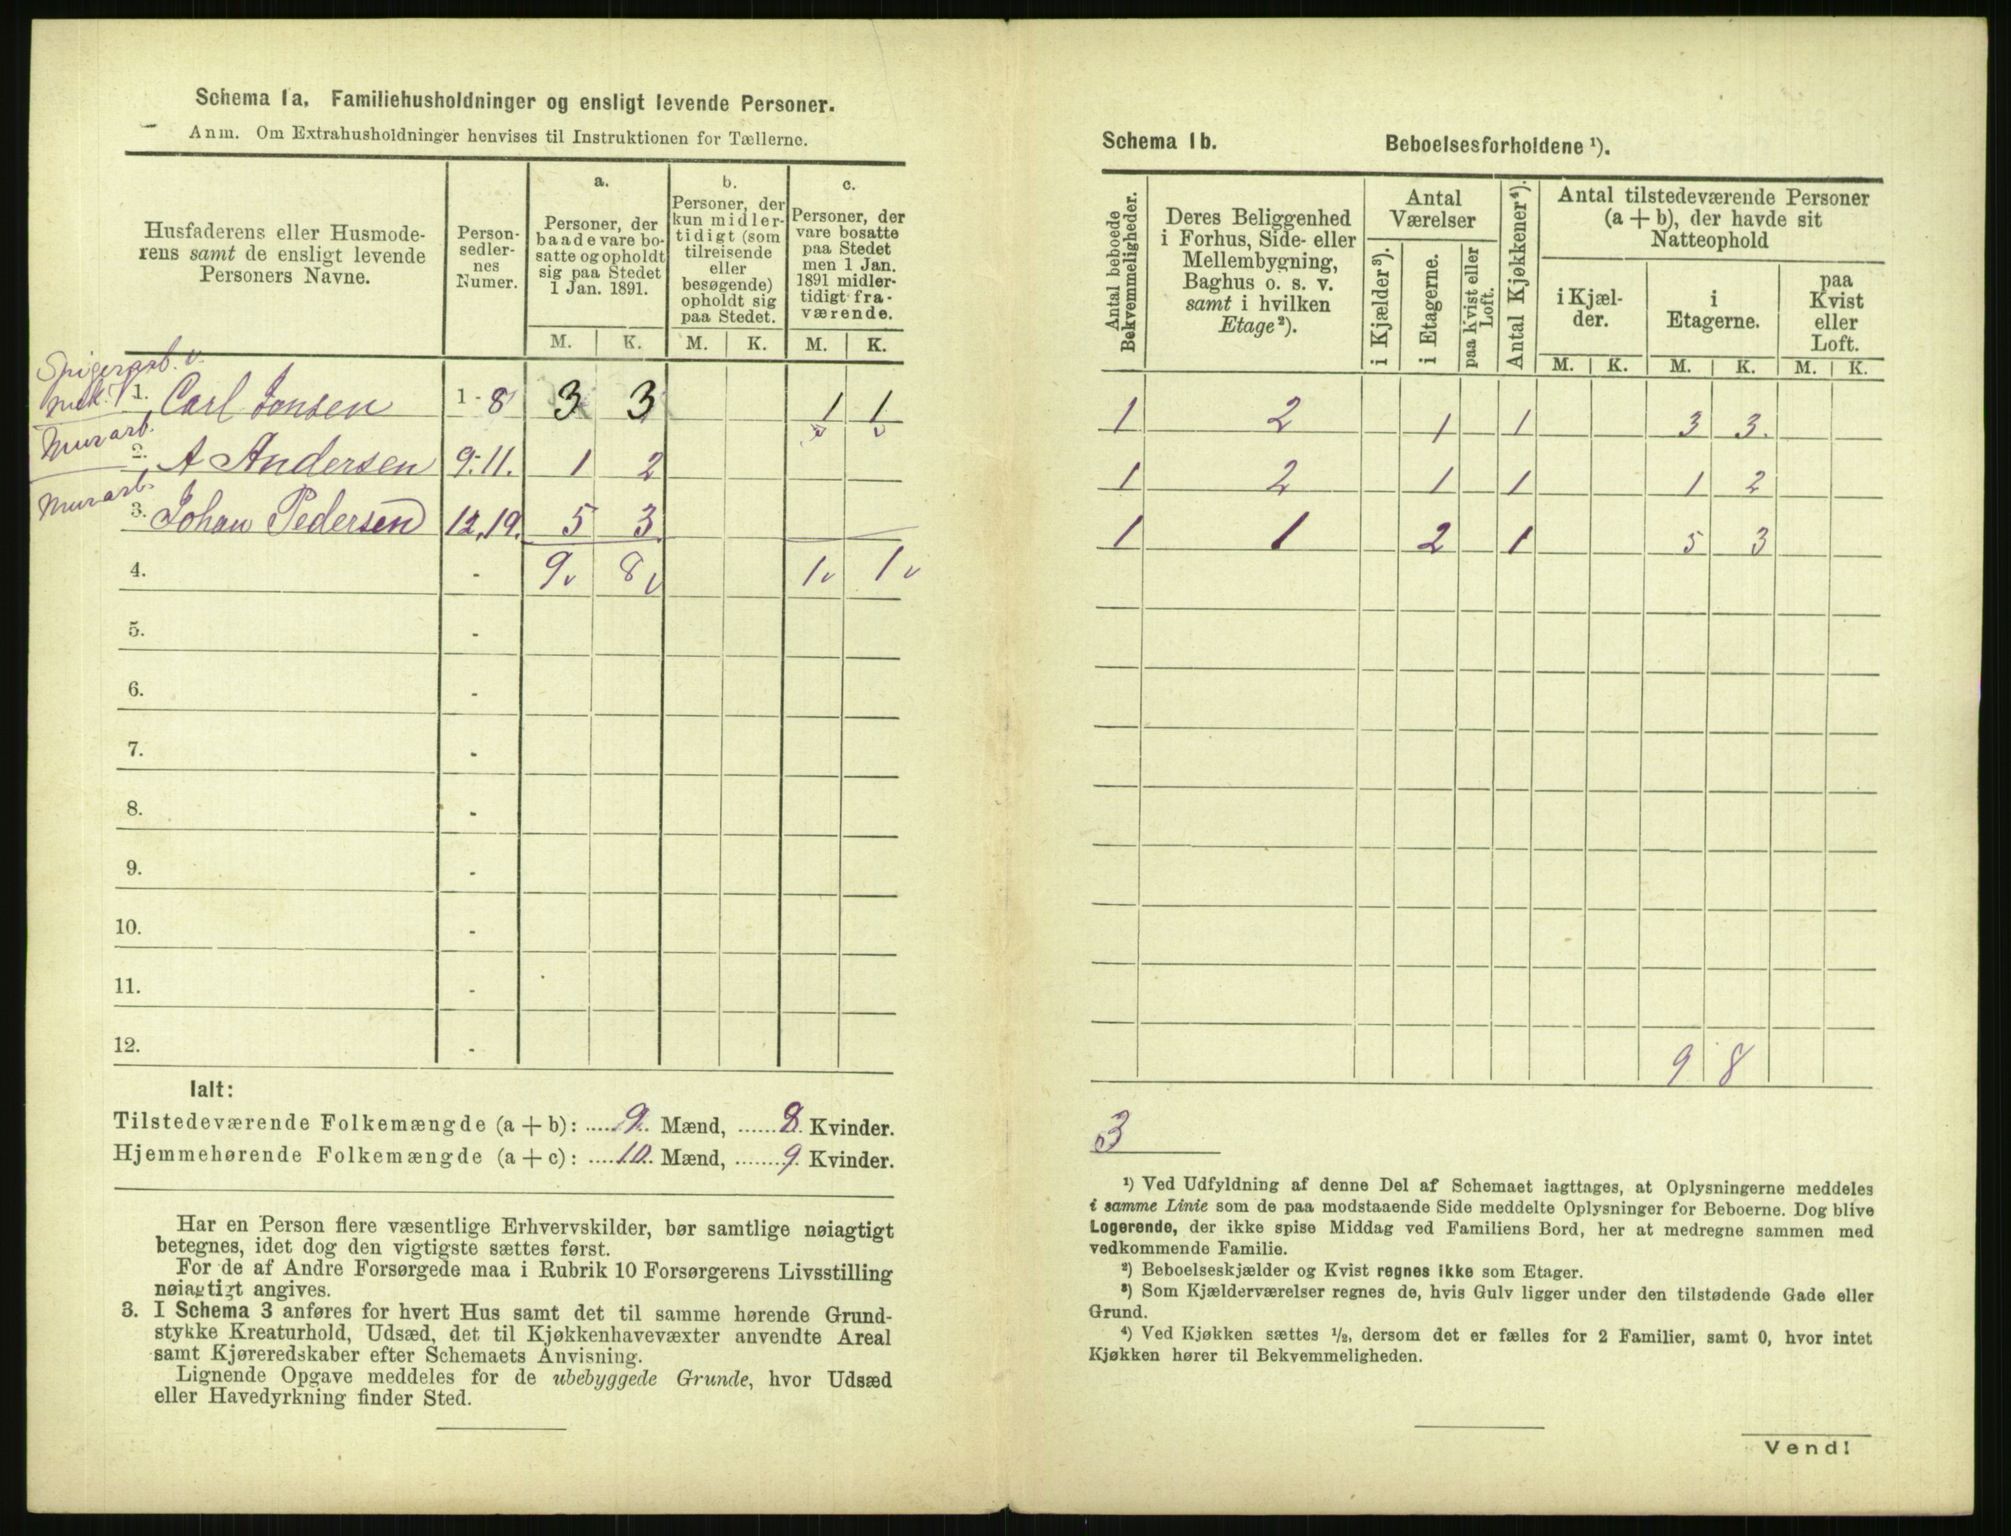 Schema 1a. Familiehusholdninger og ensligt levende Personer.
Anm. Om Extrahusholdninger henvises til Instruktionen for Tællerne.
Husfaderens eller Husmode-
rens samt de ensligt levende
Personers Navne.
Person-
sedler-
nes
Numer.
a.
Personer, der
baade vare bo-
satte og opholdt
sig paa Stedet
1 Jan. 1891.
b.
Personer, der
kun midler-
tidigt (som
tilreisende
eller
besøgende)
opholdt sig
paa Stedet.
c.
Personer, der
vare bosatte
paa Stedet
men 1 Jan.
1891 midler-
tidigt fra-
værende.
M. K. M. K. M. K.
Spigerarb. v.
mek.
1. Carl Jonsen 1-8 3 3 1 1
Murarb.
2. A Andersen 9-11. 1 2
Murarb.
3. Johan Pedersen 12,19. 5 3
4. - 9v 8v 1v 1v
5. -
6. -
7. -
8. -
9. -
10. -
11. -
12. -
Ialt:
Tilstedeværende Folkemængde (a + b): ..... 9. Mænd, ...... 8. Kvinder.
Hjemmehørende Folkemængde (a + c): .... 10. Mænd, ....... 9. Kvinder.
Har en Person flere væsentlige Erhvervskilder, bør samtlige nøiagtigt
betegnes, idet dog den vigtigste sættes først.
For de af Andre Forsørgede maa i Rubrik 10 Forsørgerens Livsstilling
nøiagtigt angives.
3. I Schema 3 anføres for hvert Hus samt det til samme hørende Grund-
stykke Kreaturhold, Udsæd, det til Kjøkkenhavevæxter anvendte Areal
samt Kjøreredskaber efter Schemaets Anvisning.
Lignende Opgave meddeles for de ubebyggede Grunde, hvor Udsæd
eller Havedyrkning finder Sted.
Schema 1b. Beboelsesforholdene ¹).
Antal beboede
Bekvemmeligheder.
Deres Beliggenhed
i Forhus, Side- eller
Mellembygning,
Baghus o. s. v.
samt i hvilken
Etage²).
Antal
Værelser
i Kjælder³).
i Etagerne.
paa Kvist eller
Loft.
Antal Kjøkkener⁴).
Antal tilstedeværende Personer
(a + b), der havde sit
Natteophold
i Kjæl-
der.
i
Etagerne.
paa
Kvist
eller
Loft.
M. K. M. K. M. K.
1 2 1 1 3 3.
1 2 1 1 1 2
1 1 2 1 5 3
9 8
3
¹) Ved Udfyldning af denne Del af Schemaet iagttages, at Oplysningerne meddeles
i samme Linie som de paa modstaaende Side meddelte Oplysninger for Beboerne. Dog blive
Logerende, der ikke spise Middag ved Familiens Bord, her at medregne sammen med
vedkommende Familie.
²) Beboelseskjælder og Kvist regnes ikke som Etager.
³) Som Kjælderværelser regnes de, hvis Gulv ligger under den tilstødende Gade eller
Grund.
⁴) Ved Kjøkken sættes ½, dersom det er fælles for 2 Familier, samt 0, hvor intet
Kjøkken hører til Bekvemmeligheden.
Vend!